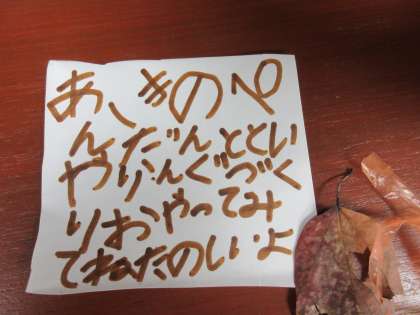 あ、きのぺ
んだんととい
やりんぐづく
りおやってみ
てねたのいよ